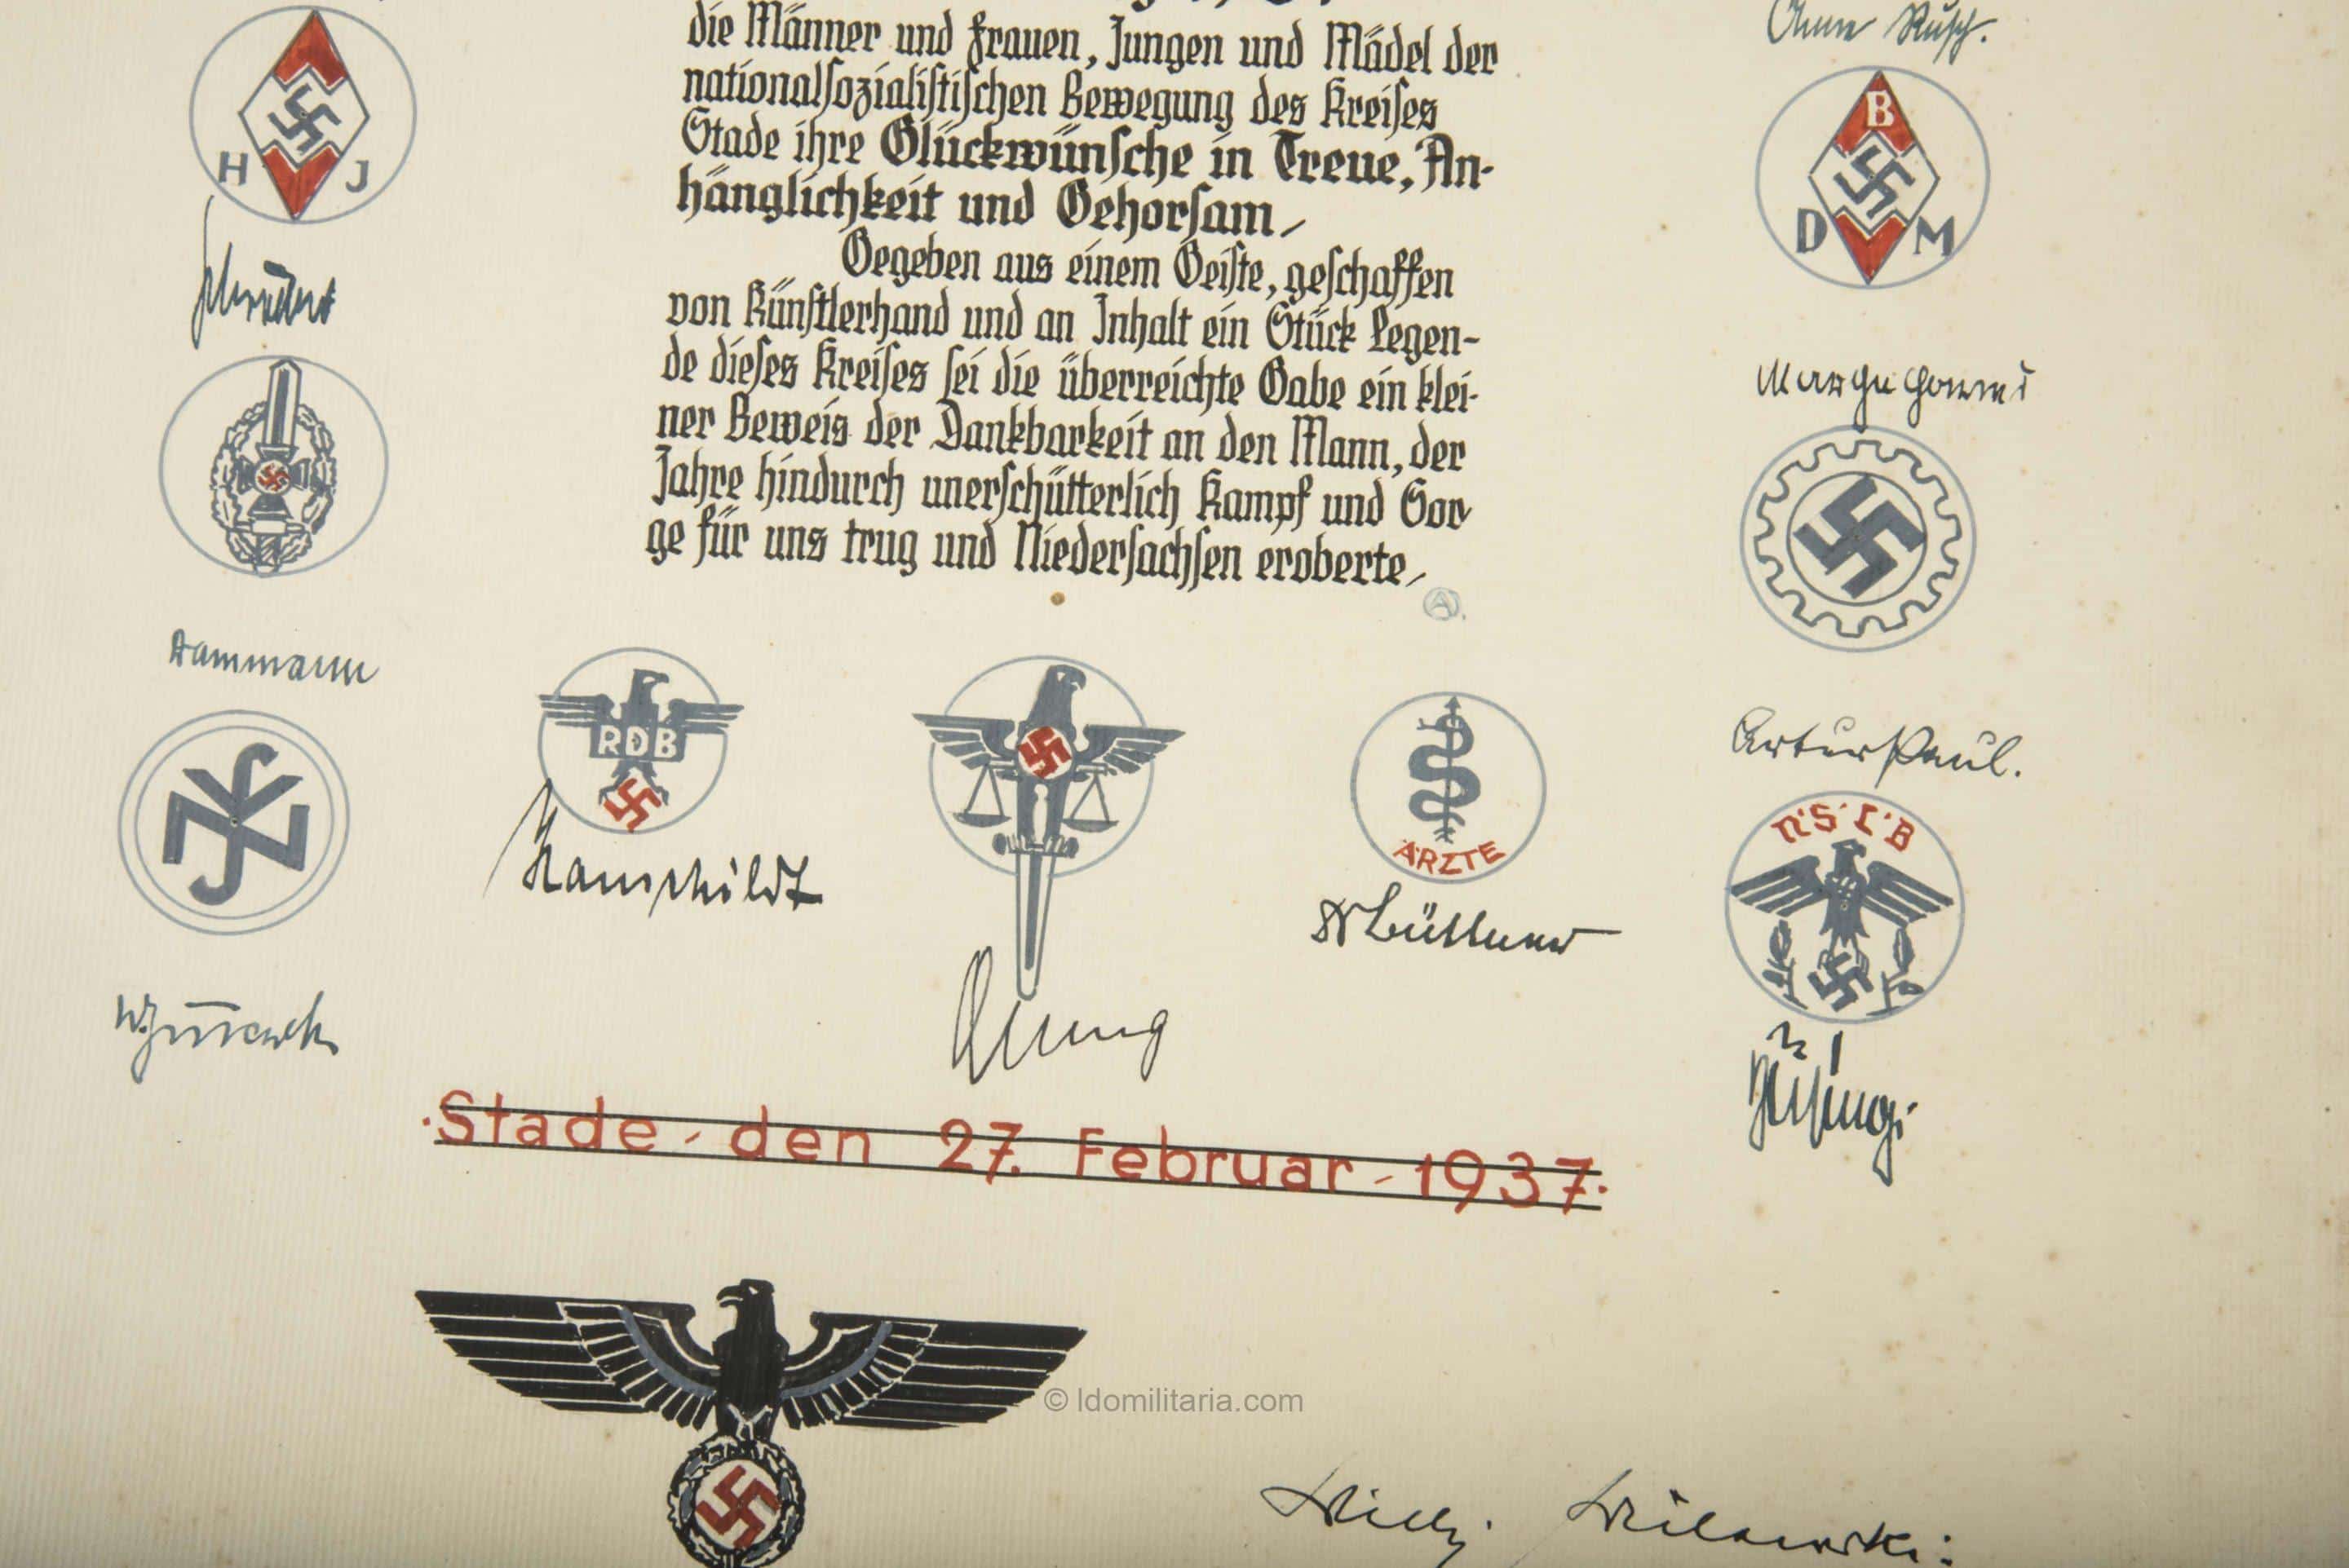 die Männer und Frauen, Jungen und Mädel der
nationalsozialistischen Bewegung des Kreises
Stade ihre Glückwünsche in Treue, An-
hänglichkeit und Gehorsam,
Gegeben aus einem Geiste, geschaffen
von Künstlerhand und an Inhalt ein Stück Legen-
de dieses Kreises sei die überreichte Gabe ein klei-
ner Beweis der Dankbarkeit an den Mann, der
Jahre hindurch unerschütterlich Kampf und Sor
ge für uns trug und Niedersachsen eroberte,
A.
H J
Anne Rusch.
B
D M
Dammann
RDB
Hauschildt
ÄRZTE
Artur Paul.
N.S.L.B
·Stade - den 27. Februar - 1937·
© ldomilitaria.com
Willy